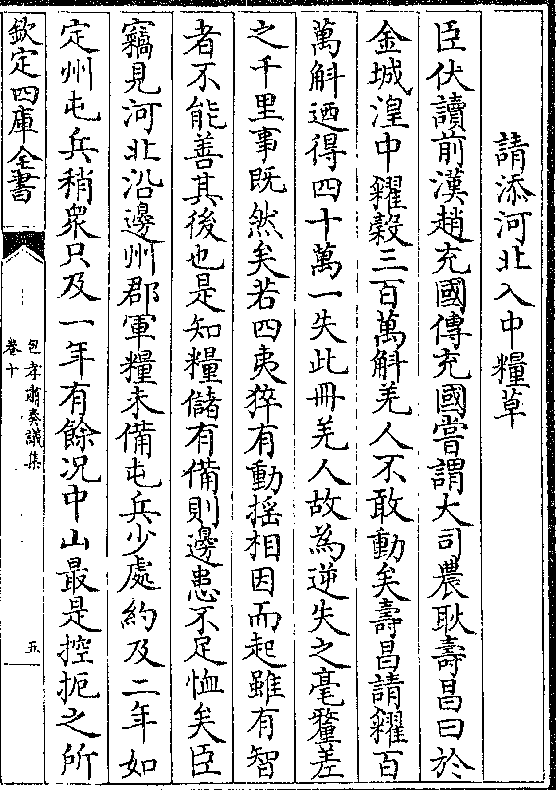 請添河北入中糧草
臣伏讀前漢趙充國傳充國嘗謂大司農耿壽昌曰於
金城湟中糴穀三百萬斛羌人不敢動矣壽昌請糴百
萬斛迺得四十萬一失此冊羌人故為逆失之毫釐差
之千里事既然矣若四夷猝有動揺相因而起雖有智
者不能善其後也是知糧儲有備則邊患不足恤矣臣
竊見河北沿邊州郡軍糧未備屯兵少處約及二年如
定州屯兵稍衆只及一年有餘況中山最是控扼之所
欽定四庫全書
包孝肅奏議集
卷十
五